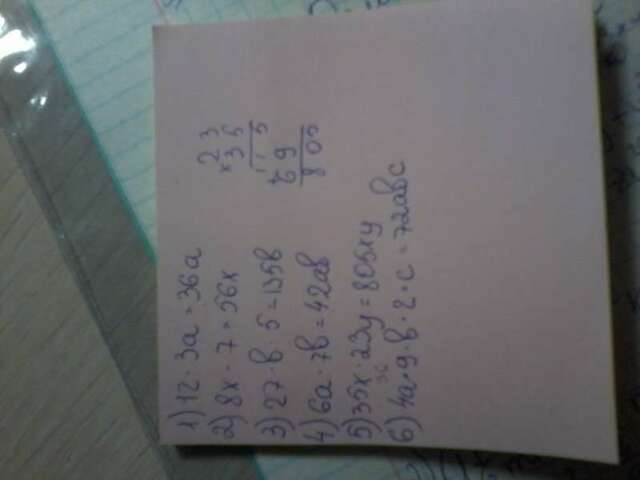 1) 12 · 3a = 36a
2) 8x · 7 = 56x
3) 27 · b · 5 = 135b
4) 6a · 7b = 42ab
5) 35x · 23y = 805xy
36
6) 4a · 9 · b · 2 · c = 72abc
23
× 35
115
+ 69
805